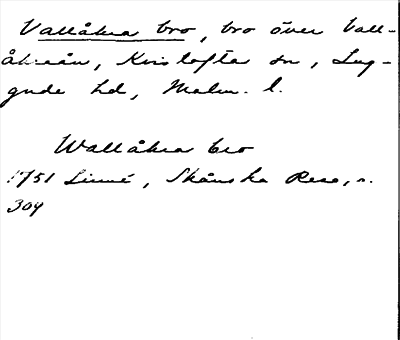 Vallåkra bro, bro över Vall-
åkraån, Kvistofta sn, Lug-
gude hd, Malm. l.
Wallåkra bro
1751 Linné, Skånska Resa, s.
304